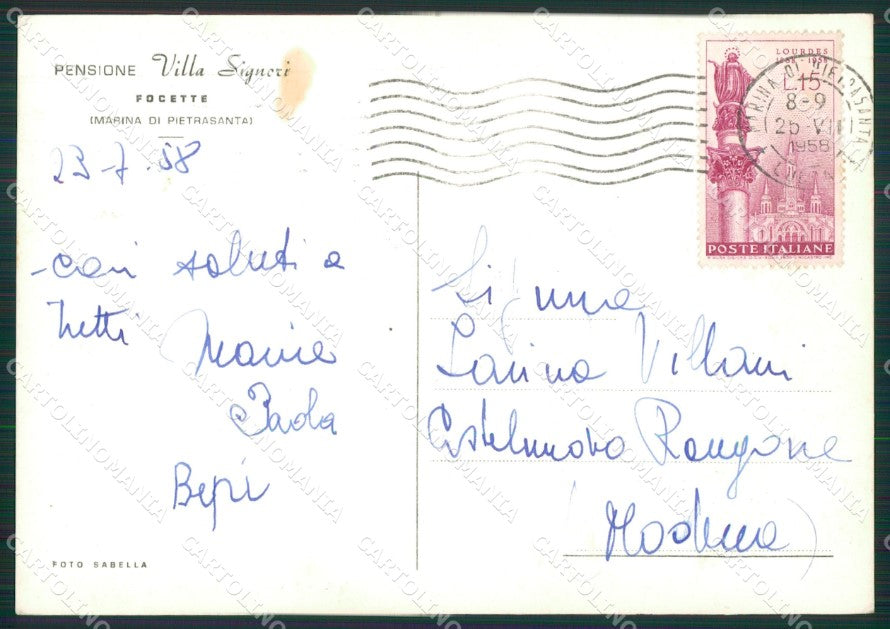 PENSIONE Villa Signori
FOCETTE
(MARINA DI PIETRASANTA)
23-7-58
cari saluti a
tutti
Maria
Paola
Bepi
FOTO SABELLA
LOURDES
1858 - 1958
L.15
POSTE ITALIANE
MARINA DI PIETRASANTA
8-9
25 VII
1958
Signora
Lavina Villani
Castelnuovo Rangone
(Modena)
CARTOLINOMANIA